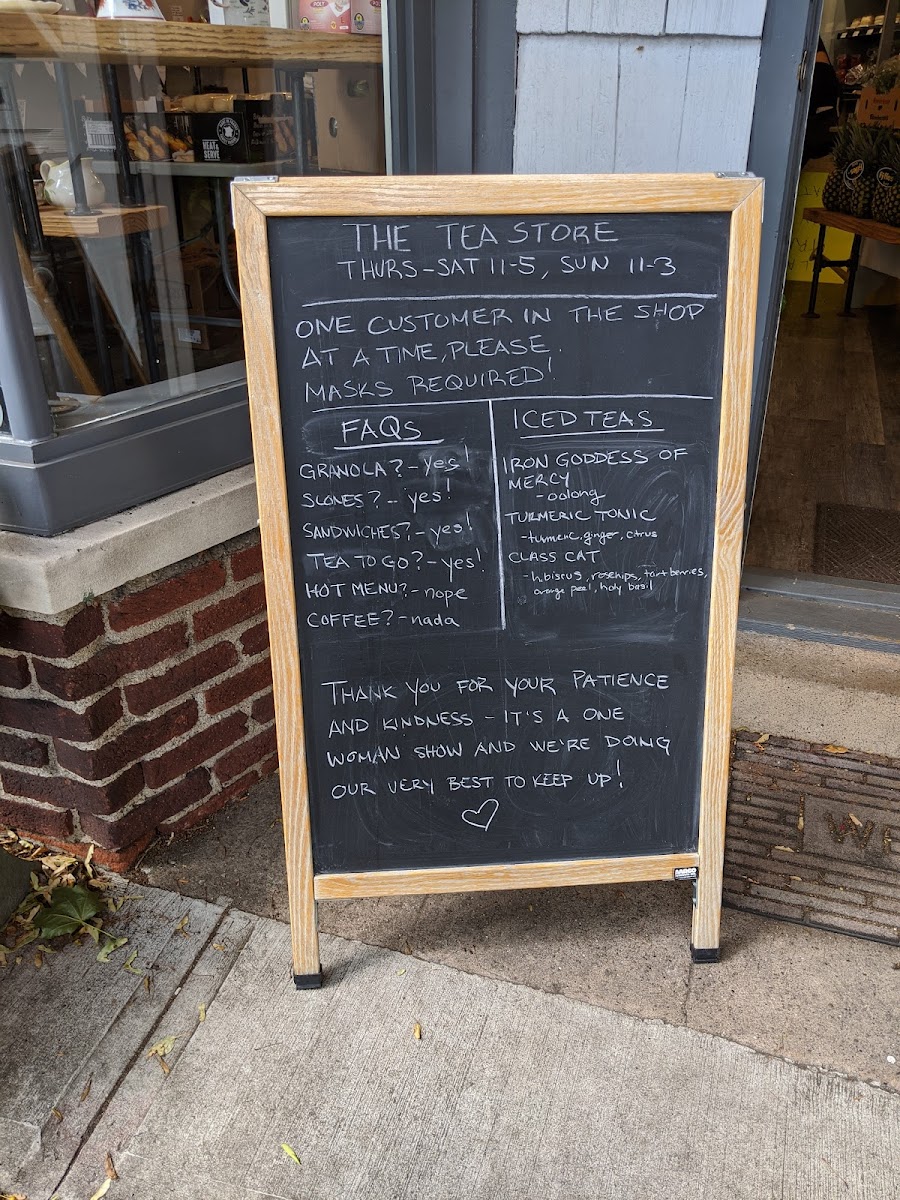 THE TEA STORE
THURS-SAT 11-5, SUN 11-3
ONE CUSTOMER IN THE SHOP
AT A TIME, PLEASE.
MASKS REQUIRED!
FAQS
GRANOLA? - yes!
SCONES? - yes!
SANDWICHES? - yes!
TEA TO GO? - yes!
HOT MENU? - nope
COFFEE? - nada
ICED TEAS
IRON GODDESS OF
MERCY
- oolong
TURMERIC TONIC
- turmeric, ginger, citrus
CLASS CAT
- hibiscus, rosehips, tart berries,
orange peel, holy basil
THANK YOU FOR YOUR PATIENCE
AND KINDNESS - IT'S A ONE
WOMAN SHOW AND WE'RE DOING
OUR VERY BEST TO KEEP UP!
HEAT &
SERVE